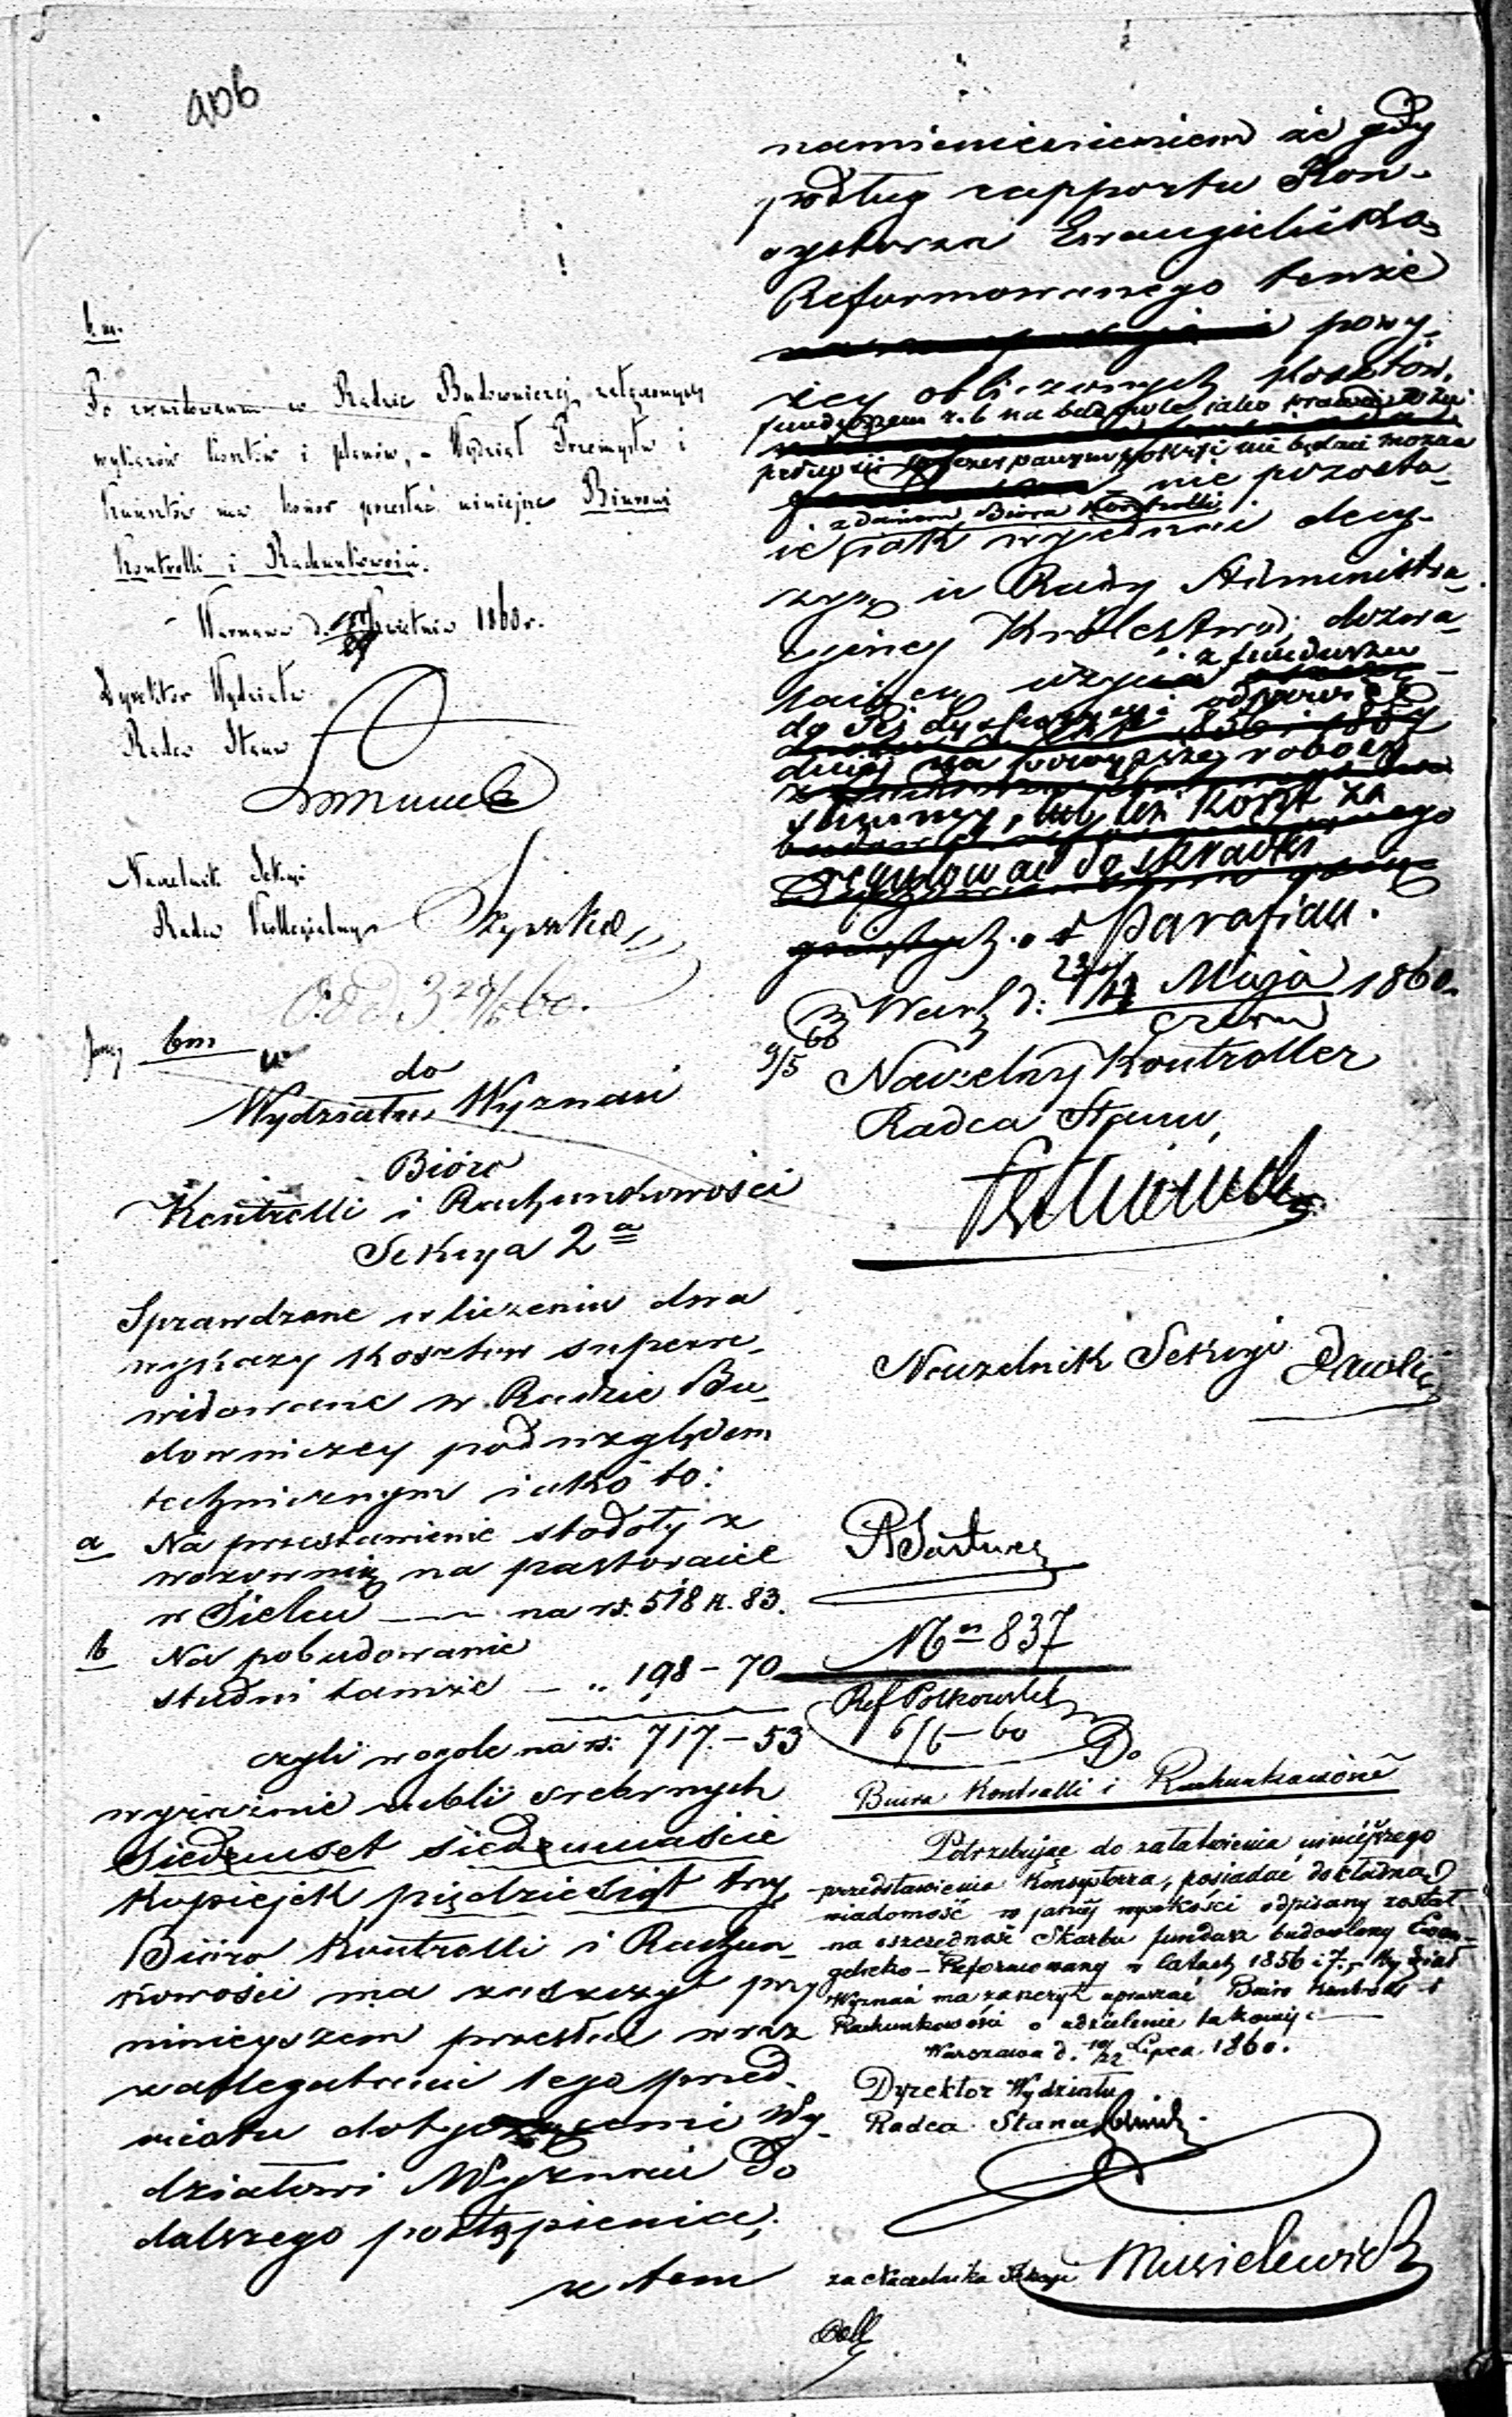 406
b.m.
Po zrewidowaniu w Radzie Budowniczej załączonych
wykazów kosztów i planów, – Wydział Przemysłu i
Kunsztów ma honor przesłać niniejsze Biurowi
Kontrolli i Rachunkowości.
Warszawa d. Kwietnia 1860 r.
Dyrektor Wydziału
Radca Stanu
Naczelnik Sekcyi
Radca Kollegialny
bm
do
Wydziału Wyznań
Bióro
Kontrolli i Rachunkowości
Sekcya 2a
Sprawdzone w liczeniu dwa
wykazy kosztów superre-
widowane w Radzie Bu-
downiczey pod względem
technicznym iako to:
a Na przestawienie stodoły z
wozownią na pastoracie
w Sielcu — na rs. 518 k. 83.
b Na pobudowanie
studni tamże — „ 198 – 70
czyli w ogole na rs: 717. – 53
wyraźnie rubli srebrnych
Siedmset siedmnaście
kopiejek pięćdziesiąt trzy
Bióro Kontrolli i Rachun-
kowości ma zaszczyt przy
ninieyszem przesłać wraz
z allegatami tego przed-
miotu dotyczącemi Wy-
działowi Wyznań do
dalszego postąpienia,
z tem
namienieniem że gdy
podług rapportu Kon-
systorza Ewangielicko-
Reformowanego tenże
powy-
żey obliczonych kosztów,
funduszem r. b. na budowle jako
pokryć nie będzie można
nie pozosta-
zdaniem Bióra Kontrolli,
ie jak wyiednać decy-
zyą u Rady Administra-
cyiney Królestwa, dozwa-
laiącą użycia z funduszu
do Rs.
1856 i 1857
na powyższe roboty
summy, lub też koszt za
regulować do składki
Parafian.
Warsz d. Maja 1860.
czerw
9/5 Naczelny Kontroller
Radca Stanu,
Naczelnik Sekcyi
No 837
Ref Polkowski
6/6 – 60
Do
Biura Kontrolli i Rachunkowości
Potrzebując do załatwienia niniejszego
przedstawienia Konsystorza, posiadać dokładną
wiadomość w jakiéj wysokości odpisany został
na oszczędność Skarbu fundusz budowlany Ewan-
gelicko – Reformowany w latach 1856 i 7. – Wydział
Wyznań ma zaszczyt upraszać Biuro Kontroli i
Rachunkowości o udzielenie takowéj. —
Warszawa d. 10/22 Lipca 1860.
Dyrektor Wydziału
Radca Stanu
za Naczelnika Sekcyi Musielewicz